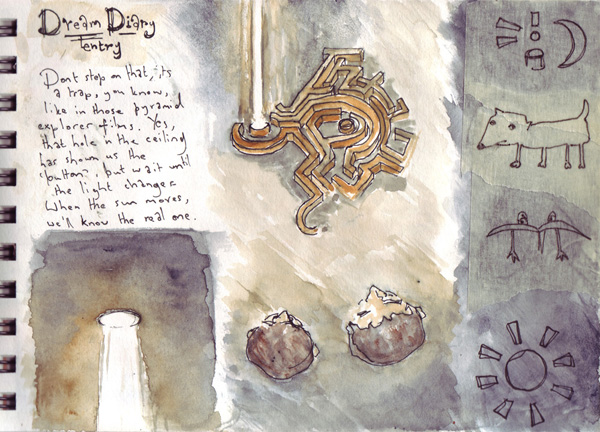 Dream Diary
entry
Dont stop on that, its
a trap, you know,
like in those pyramid
explorer films. Yes,
that hole in the ceiling
has shown us the
"button", but wait until
the light changes.
When the sun moves,
we'll know the real one.